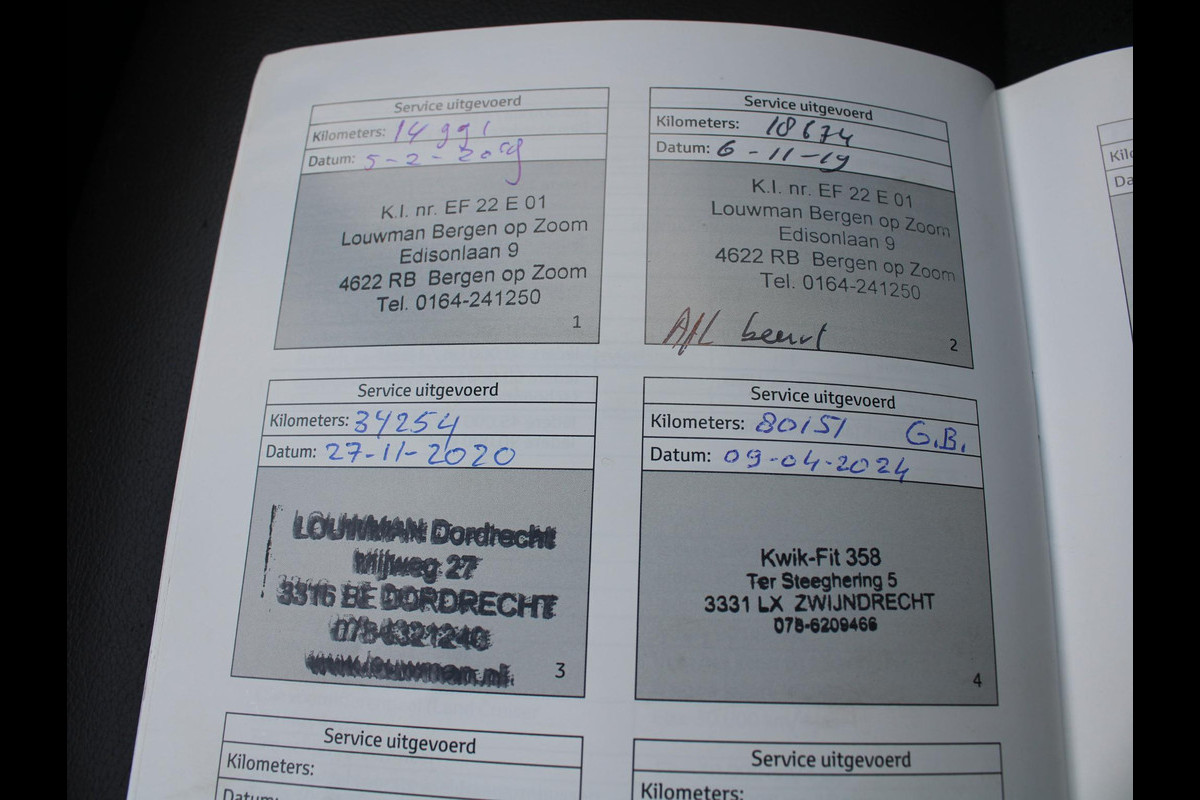 Service uitgevoerd
Kilometers: 14 991
Datum: 5-2-2019
K.I. nr. EF 22 E 01
Louwman Bergen op Zoom
Edisonlaan 9
4622 RB Bergen op Zoom
Tel. 0164-241250
1
Service uitgevoerd
Kilometers: 18674
Datum: 6-11-19
K.I. nr. EF 22 E 01
Louwman Bergen op Zoom
Edisonlaan 9
4622 RB Bergen op Zoom
Tel. 0164-241250
Afl beurt
2
Service uitgevoerd
Kilometers: 34254
Datum: 27-11-2020
LOUWMAN Dordrecht
Mijlweg 27
3316 BE DORDRECHT
078-6321240
www.louwman.nl
3
Service uitgevoerd
Kilometers: 80151 G.B.
Datum: 09-04-2024
Kwik-Fit 358
Ter Steeghering 5
3331 LX ZWIJNDRECHT
078-6209466
4
Service uitgevoerd
Kilometers:
Datum:
Service uitgevoerd
Kilometers: